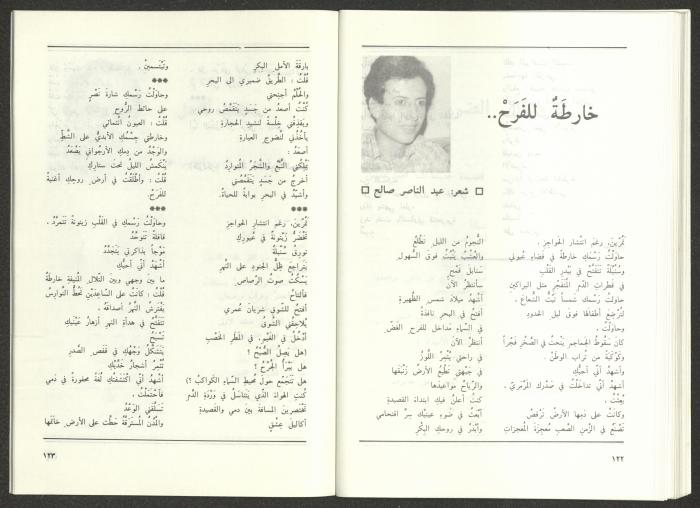 خارطَةٌ للفَرَحْ..
□ شعر: عبد الناصر صالح □
تمُرّينَ، رغمَ انتشارِ الحواجزِ .
حاولتُ رَسْمَكِ خارطةً في فضاءِ عيوني
وسُنْبُلَةً تتفَتَّحُ في بَيْدرِ القلْبِ
في قطراتِ الدَّمِ المُتَفَجِّرِ مثل البراكينِ
حاولتُ رسمَكِ شمساً تَبُثُّ الشعاعَ .
لتُرْضِعَ أطفالَنا فوقَ ليلِ الحدودِ
وحاولتُ .
كانَ سُقوطُ الجماجمِ يَبْحثُ في الصَّخْرِ فَجْراً
وكَوْكَبَةً من تُرابِ الوطَنْ .
وأشهدُ أني أُحبُّكِ
أشهدُ أنّي تداخَلْتُ في صَدْرِكِ المَرْمَريِّ .
بُعِثْتُ .
وكانتْ على دَمِها الأرضُ تَرْقصُ
تَصْنَعُ في الزَّمنِ الصَّعبِ مُعجِزَةَ المُعجزاتِ
النُّجومُ من الليلِ تَطْلعُ
والعُشْبُ يَنْبُتُ فوقَ السُّهولِ
سنابلَ قَمْحٍ
سأنتظرُ الآنَ
أشْهدُ ميلادَ شمسِ الظَّهيرةِ
أفتحُ في البحرِ نافذةً
في السَّماءِ مَداخلَ للفرحِ الغَضِّ
أنتظرُ الآنَ
في راحتي يُثْمِرُ اللَّوْزُ
في جَبْهتي تطْبَعُ الأرضُ زَنْبقَها
والرِّياحُ مَواعيدَها
كنتُ أُعلنُ فيكِ ابتداءَ القصيدةِ
أبْعثُ في ضوءِ عينيكِ سِرَّ اقتحامي
وأبْذرُ في روحكِ البِكْرِ
١٢٢
بارقَةَ الأملِ البِكرِ
قُلْتُ : الطَّريقُ ضميري الى البحرِ
والحُلْمُ أجنحتي
كُنْتُ أصعدُ من جَسَدٍ يتَقَمَّصُ روحي
ويَقْذِفُني خِلْسةً لنشيدِ الحجارةِ
يأخُذُني لنُضوجِ العبارةِ
أصعدُ :
يَمْلِكُني النَّبْعُ والشَّجَرُ المُتواردُ
أخرجُ من جَسَدٍ يَتَقَمَّصُني
وأُشَيِّدُ في البحرِ بوابةً للحياةْ.
***
تمُرّينَ، رغمَ انتشارِ الحواجزِ
تَخْضَرُّ زَيْتونةٌ في عُبورِكِ
تورقُ سُنْبُلةٌ
يَتراجعُ ظِلُّ الجنودِ على النَّهرِ
يَسْكُتُ صوتُ الرَّصاصِ
فألتاحُ
أفتحُ للشَّوقِ شريانَ عمري
يُلاحِقُني الشَّوْقُ
أدْخُلُ في الغَيْمِ. في المطرِ الخَصْبِ
(هل يَصِلُ الصُّبْحُ ؟
هل يَبْرأُ الجُرْحُ ؟)
هل تتجمّعُ حولَ مُحيطِ السَّماءِ الكواكبُ ؟)
كُنتِ الهواءَ الذي يتناسَلُ في وَرْدَةِ الدَّمِ
تختصرينَ المسافةَ بين دمي والقصيدةِ
أكاليلَ عِشْقٍ
وتَبْتسمينْ .
***
وحاوَلْتُ رَسْمَكِ شارةَ نَصْرٍ
على حائطِ الرُّوحِ
قُلْتُ : العيونُ انْتمائي
وخارطتي جِسْمُكِ الأبديُّ على الشَّطِّ
والوَجْدُ من دمِكِ الأرجواني يَصْعَدُ
يَنْكمشُ الليلُ تحتَ ستاركِ
قُلْتُ : وأَطْلَقْتُ في أرضِ روحِكِ أغنيةً
للفَرَحْ.
***
وحاوَلْتُ رَسْمَكِ في القَلْبِ زيتونةً تتَمرَّدُ .
قافلةً تَتوحَّدُ
مَوْجاً بذاكرتي يَتَجدَّدُ
أشْهَدُ أنّي أُحبُّكِ
ما بين وجهي وبين التَّلالِ المُنيفةِ خارطةٌ
قُلْتُ : كانتْ على السّاعدَيْنِ تَحُطُّ النَّوارسُ
يَفْترشُ النَّهرُ أصدافَهُ .
تَتَفَتَّحُ في هدأةِ النهرِ أزهارُ عَيْنَيْكِ
تَسْبَحُ
يَتَشَكَّلُ وَجْهُكِ في قَفَصِ الصدرِ
تُثمرُ أشجارُ خَدَّيْكِ
أشهدُ أني اكْتَشَفْتُكِ لُغَةً محفورةً في دَمي
فاحْتَمَلْتُ .
تَسلَّقَني الوَعْدُ
والمُدُنُ المُسترقَّةُ حَطَّتْ على الأرضِ خاتَمها
١٢٣